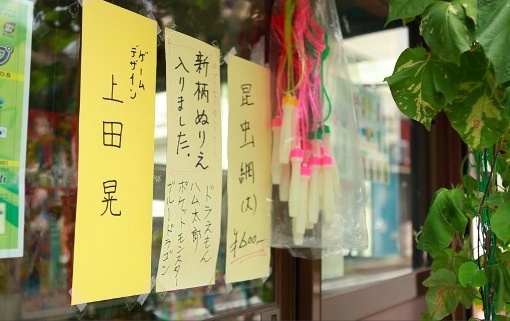 ゲーム
デザイン
上田 晃
新柄ぬりえ
入りました。
ドラえもん
ハム太郎
ポケットモンスター
ブルードラゴン
昆虫網(大)
¥600-